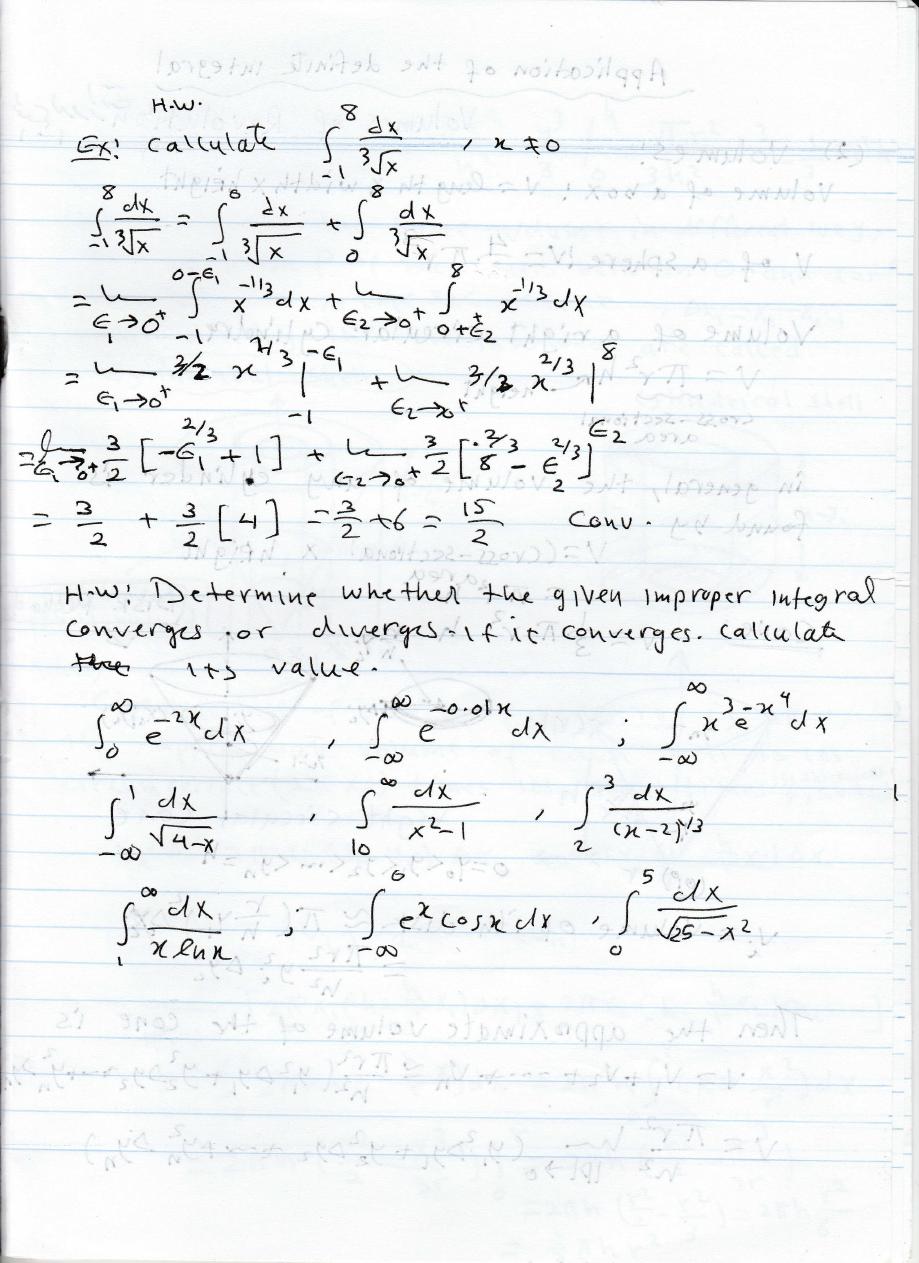 H.W.
Ex: Calculate ∫_{-1}^{8} dx/∛x , x ≠ 0
∫_{-1}^{8} dx/∛x = ∫_{-1}^{0} dx/∛x + ∫_{0}^{8} dx/∛x
= lim_{ϵ₁→0⁺} ∫_{-1}^{0-ϵ₁} x^{-1/3} dx + lim_{ϵ₂→0⁺} ∫_{0+ϵ₂}^{8} x^{-1/3} dx
= lim_{ϵ₁→0⁺} 3/2 x^{2/3} |_{-1}^{-ϵ₁} + lim_{ϵ₂→0⁺} 3/2 x^{2/3} |_{ϵ₂}^{8}
= lim_{ϵ₁→0⁺} 3/2 [-ϵ₁^{2/3} + 1] + lim_{ϵ₂→0⁺} 3/2 [8^{2/3} - ϵ₂^{2/3}]
= 3/2 + 3/2 [4] = 3/2 + 6 = 15/2 Conv.
H.W: Determine whether the given improper integral
converges or diverges. if it converges. calculate
its value.
∫_{0}^{∞} e^{-2x} dx , ∫_{-∞}^{∞} e^{-0.01x} dx ; ∫_{-∞}^{∞} x³ e^{-x⁴} dx
∫_{-∞}^{1} dx/√(4-x) , ∫_{10}^{∞} dx/(x²-1) , ∫_{2}^{3} dx/(x-2)^{1/3}
∫_{1}^{∞} dx/(x ln x) ; ∫_{-∞}^{0} e^x cosx dx , ∫_{0}^{5} dx/√(25-x²)